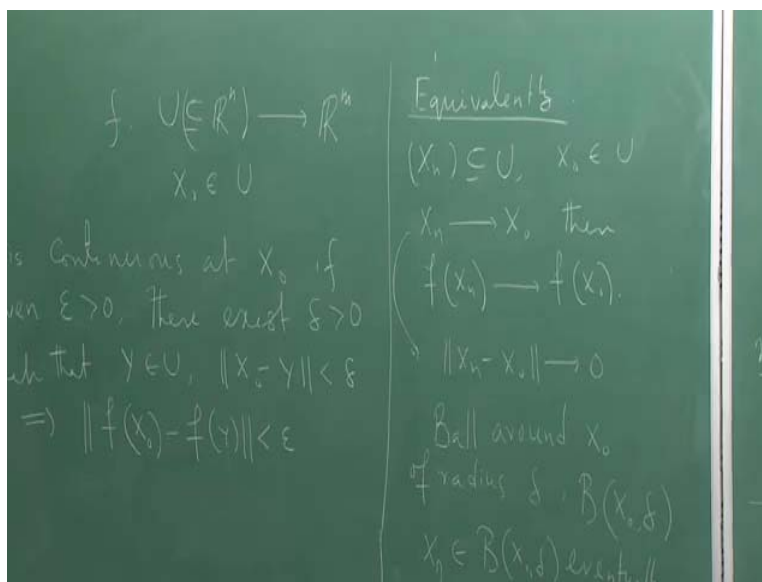 f. U(⊆ ℝⁿ) ⟶ ℝᵐ
X₀ ∈ U
is continuous at X₀ if
ven ε>0, there exist δ>0
uch that Y∈U, ||X₀-Y||<δ
⟹ ||f(X₀)-f(Y)||<ε
Equivalently
(Xₙ) ⊆ U, X₀ ∈ U
Xₙ ⟶ X₀ then
f(Xₙ) ⟶ f(X₀).
||Xₙ-X₀|| ⟶ 0
Ball around X₀
of radius δ, B(X₀,δ)
Xₙ ∈ B(X₀,δ)